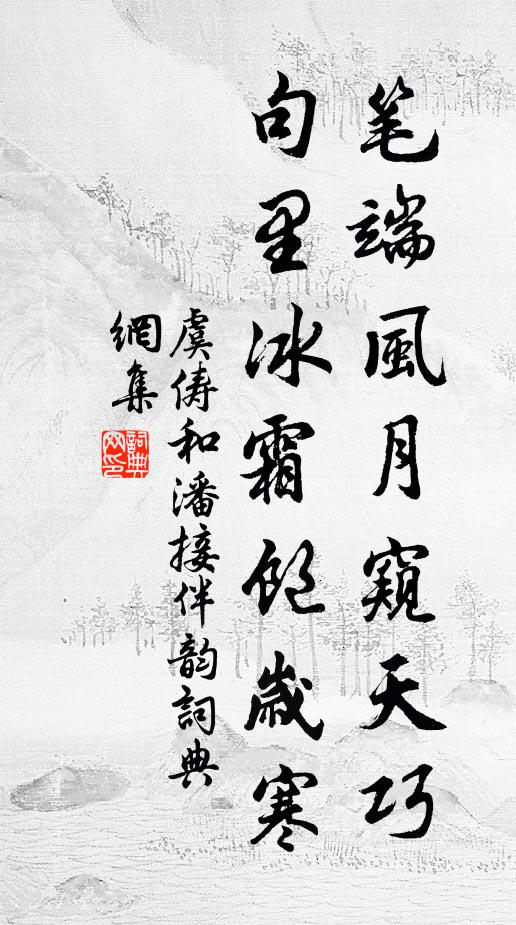 笔端風月窺天巧
句里冰霜飽歲寒
虞儔和潘接伴韵詞典
網集
詞典
网印